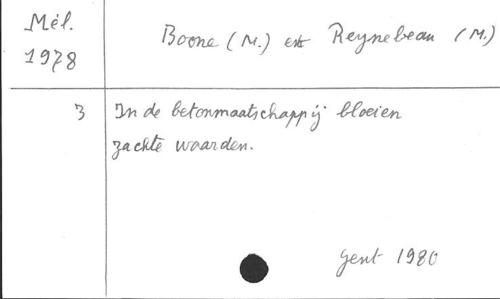 Mél.
1978
Boone (M.) et Reynebeau (M.)
3
In de betonmaatschappij bloeien
zachte waarden.
Gent 1980